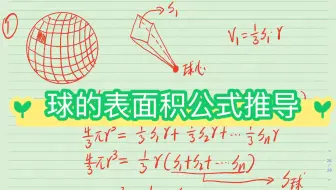 ① S₁
V₁=⅓S₁r
球心
球的表面积公式推导
4/3πr³=⅓S₁r+⅓S₂r+…⅓Sₙr
4/3πr³=⅓r(S₁+S₂+…Sₙ)
S球